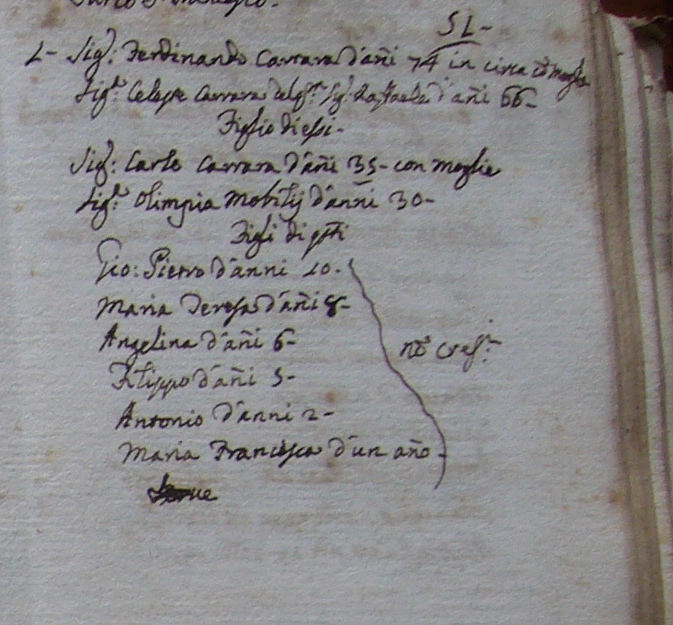 51-
1- Sig.r Ferdinando Carrara d'añi 74 in circa cō moglie
Sig.ra Celeste Carrara del q.m Sig. Raffaele d'añi 66-
Figlio di essi-
Sig.r Carlo Carrara d'añi 35- con moglie
Sig.ra Olimpia Mobilij d'anni 30-
Figli di q̃sti
Gio: Pietro d'anni 10-
Maria Teresa d'añi 8-
Angelina d'añi 6-
Filippo d'añi 5-
Antonio d'anni 2-
Maria Francesca d'un año-
nō cres.ti